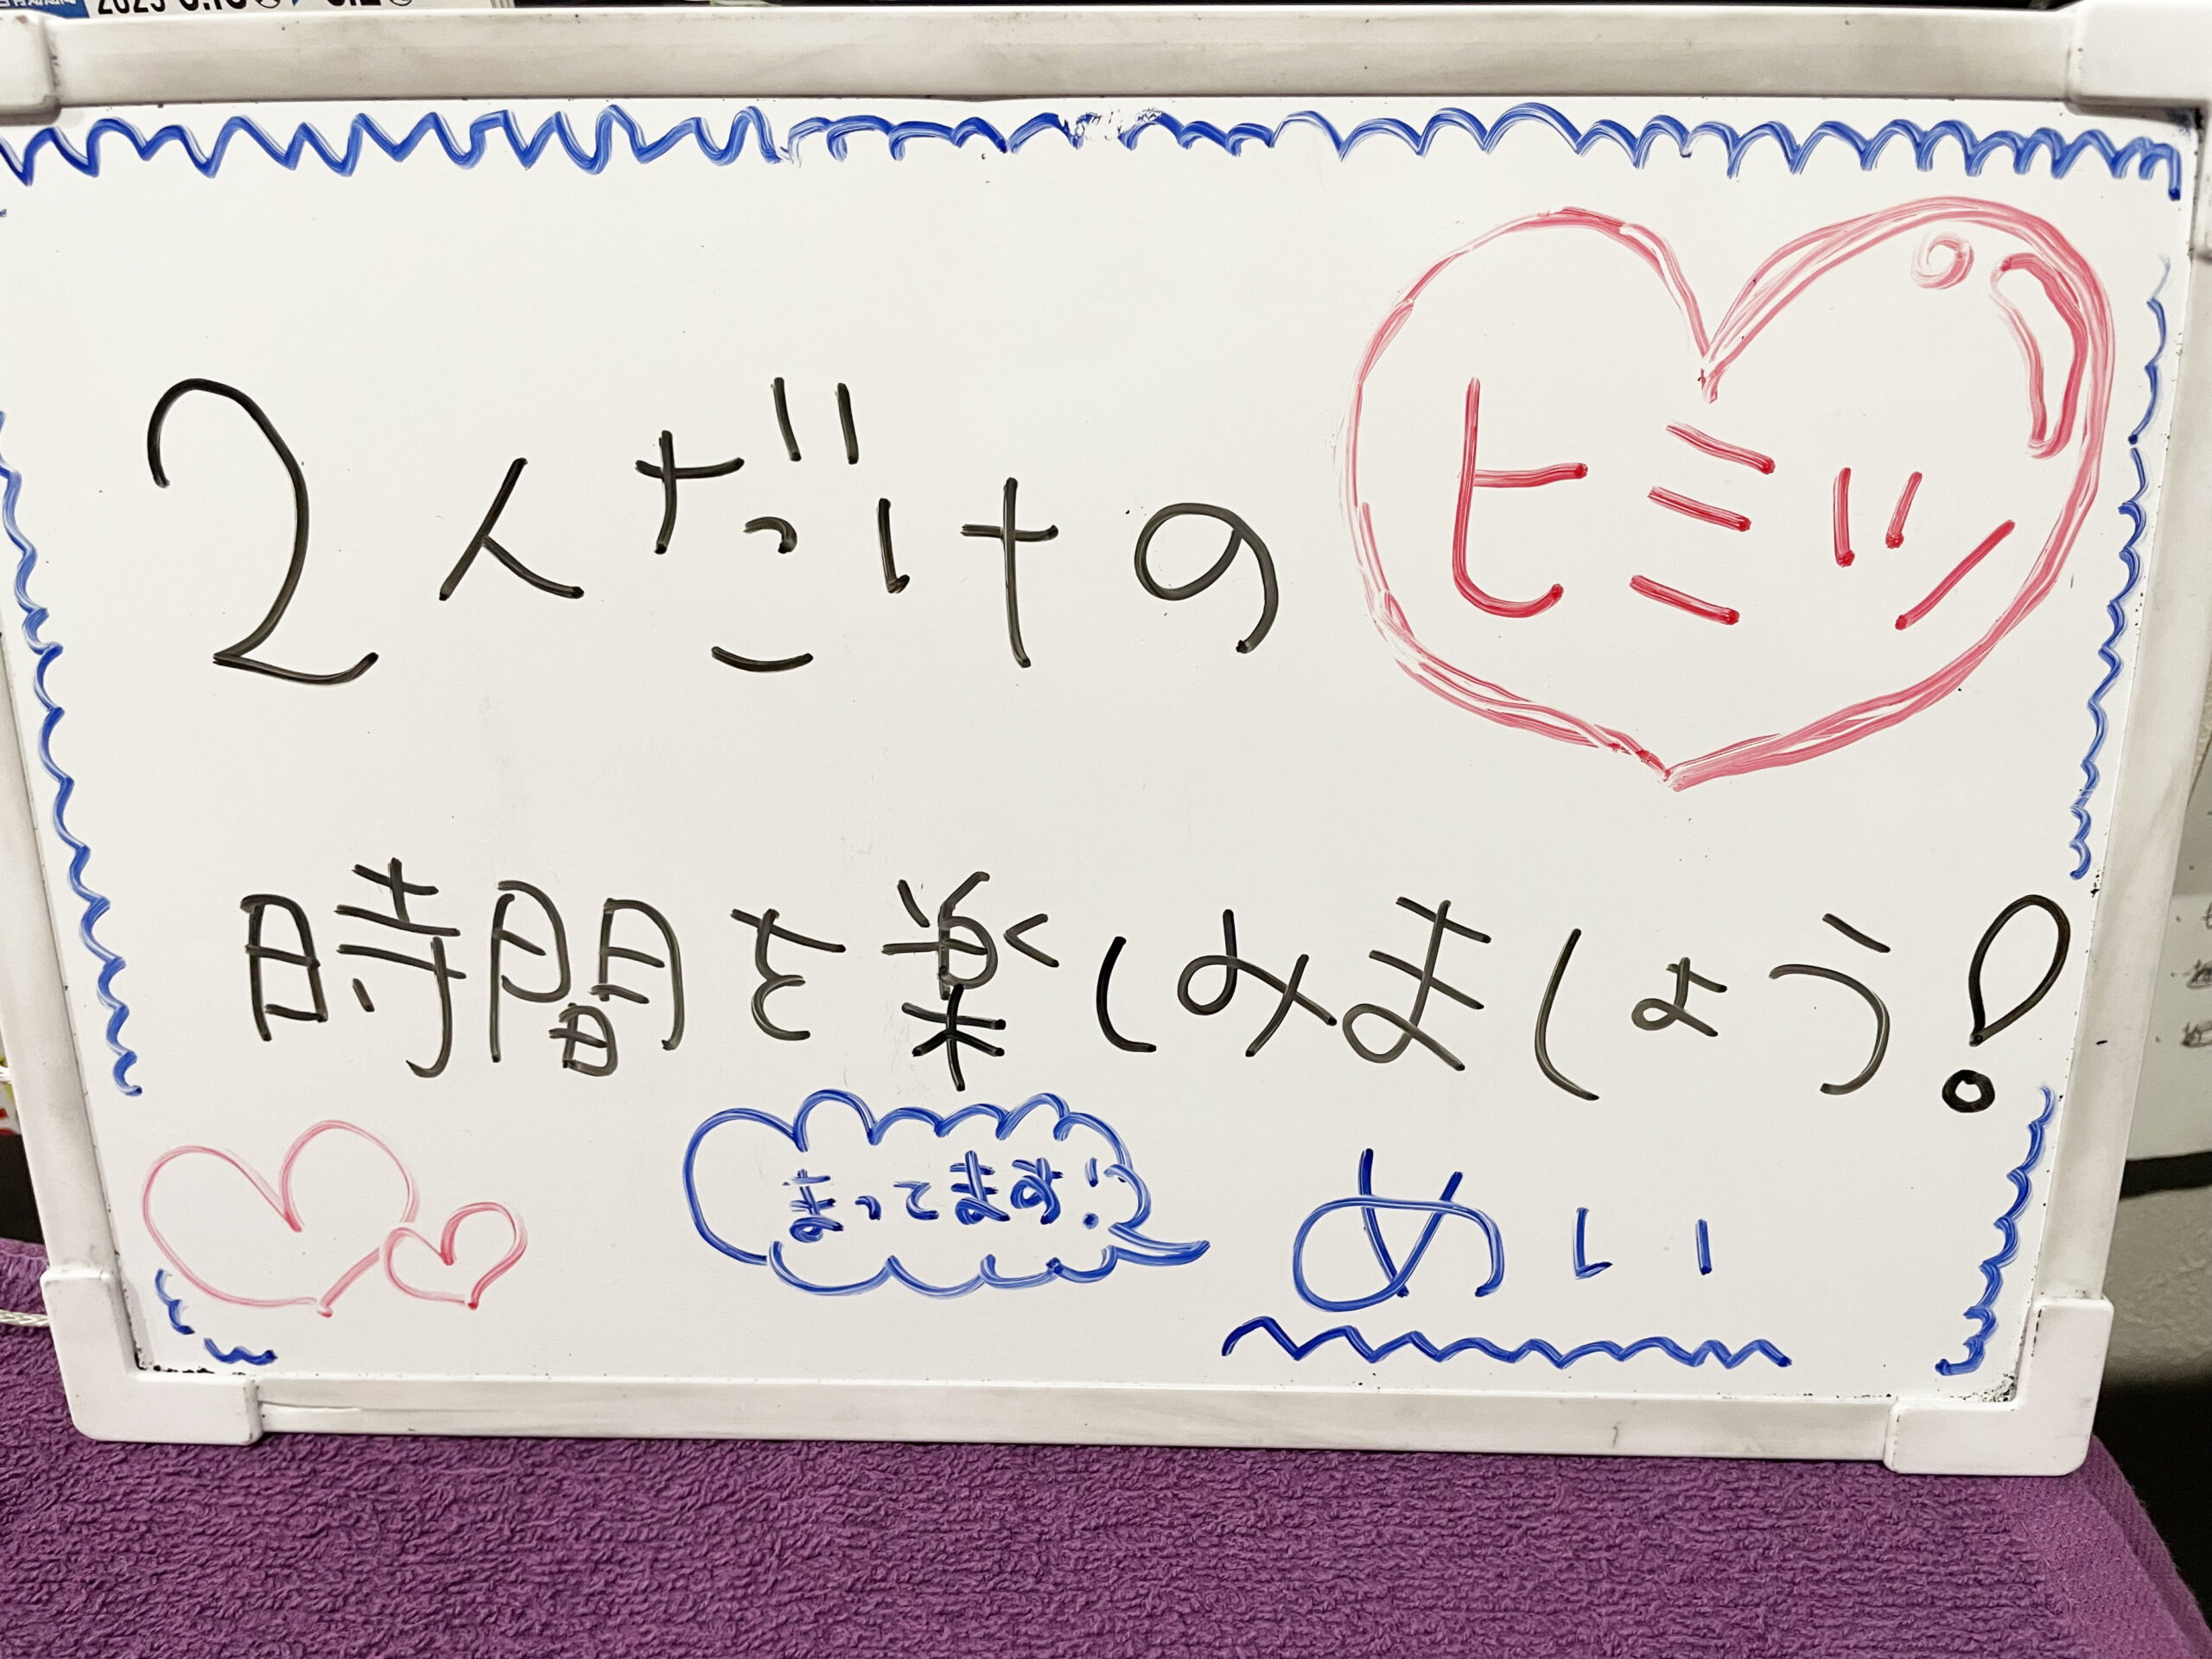 2人だけのヒミツ
時間を楽しみましょう!
まってます!
めい